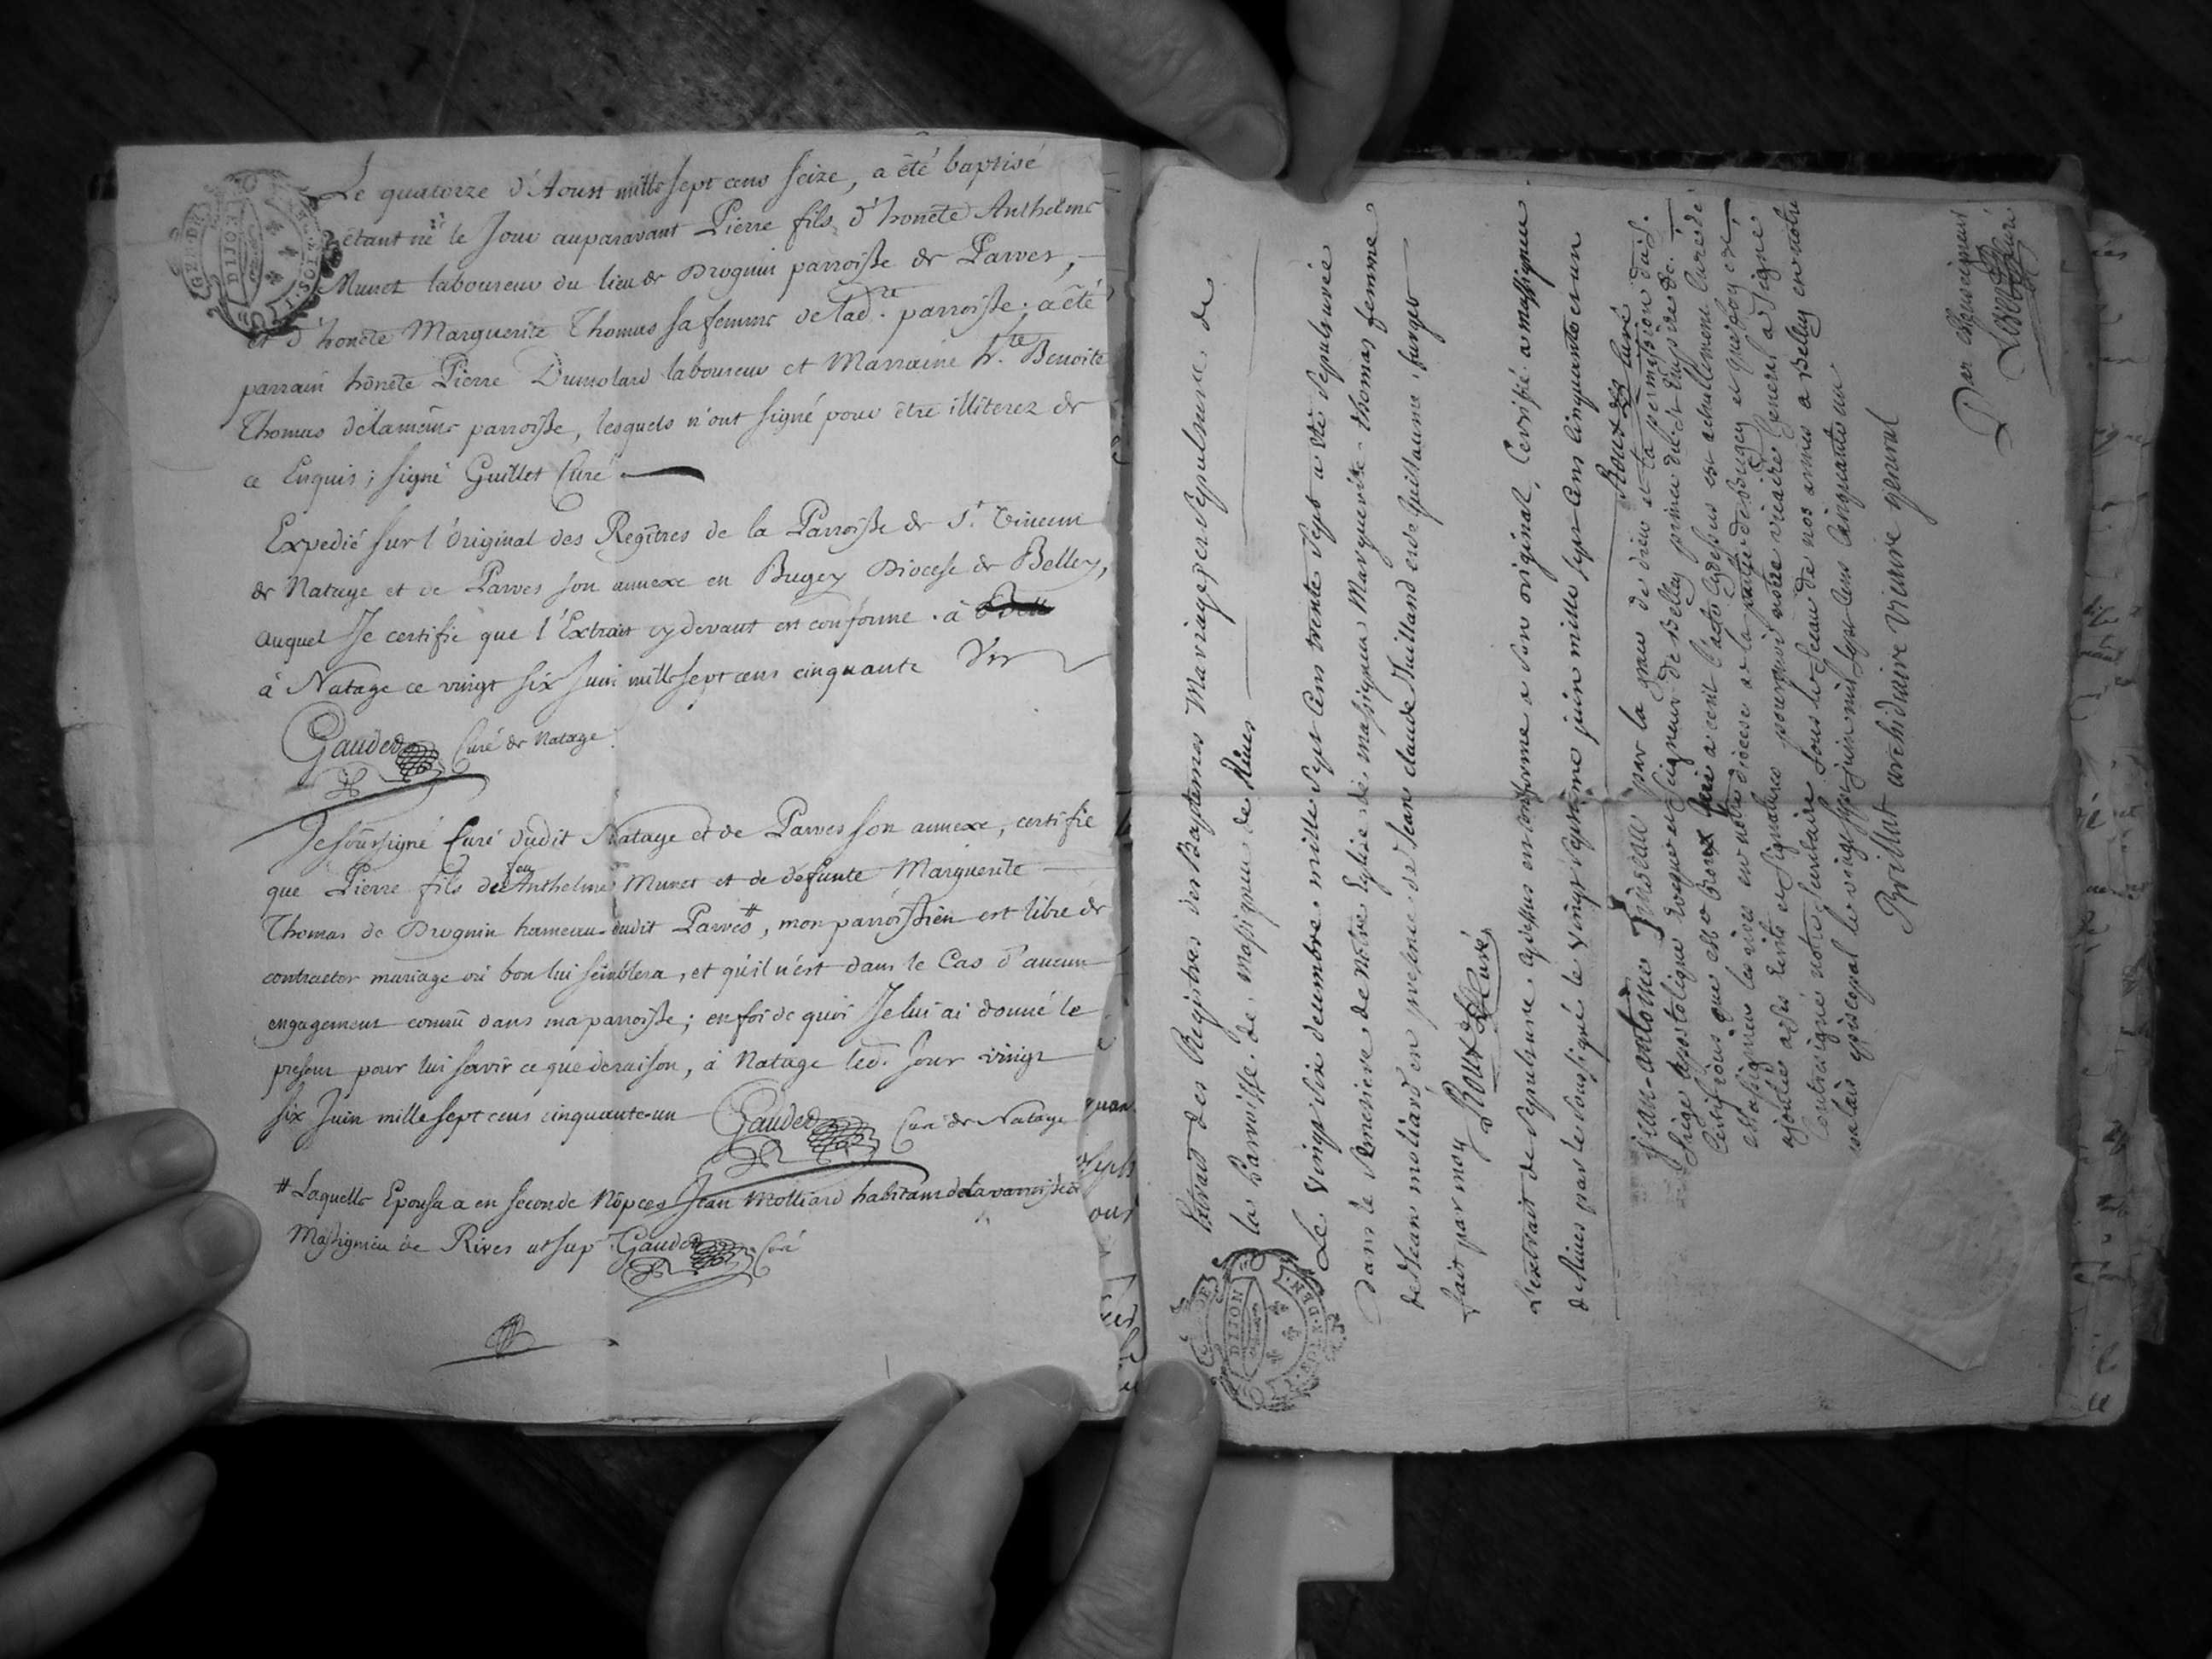 Le quatorze d'Aoust mille sept cens seize, a été baptisé
étant né le Jour auparavant Pierre fils d'honête Anthelme
Munet laboureur du lieu de Drognin parroisse de Parves,
et d'honête Marguerite Thomas sa femme de lad.te parroisse; a été
parrain honête Pierre Dumolard laboureur et Marraine h.te Benoite
Thomas de la même parroisse, lesquels n'ont signé pour être illiterez de
ce Enquis; signé Guillet Curé
Expedié sur l'original des Regîtres de la Parroisse de St. Vincent
de Natage et de Parves son annexe en Bugey Diocese de Belley,
auquel Je certifie que l'Extrait cy devant est conforme. à
à Natage ce vingt six Juin mille sept cens cinquante
Gaudet Curé de Natage
Je soussigné Curé dudit Natage et de Parves son annexe, certifie
que Pierre fils de feu Anthelme Munet et de défunte Marguerite
Thomas de Drognin hameau dudit Parves #, mon parroissien est libre de
contracter mariage où bon lui semblera, et qu'il n'est dans le Cas d'aucun
engagement connû dans ma parroisse; en foi de quoi Je lui ai donné le
present pour lui servir ce que de raison, à Natage led. Jour vingt
six Juin mille sept cens cinquante-un Gaudet Curé de Natage
# Laquelle Epousa en seconde Nôpces Jean Molliard habitant de la parroisse de
Massignieu de Rives ut sup. Gaudet Curé
GEN DE
DIJON
Extrait des Registres des Baptemes Mariages et Sepulture de
la Parroisse de massignieu de Rives
Le vingt six decembre mille sept cens trente sept a eté sepulturée
Dans le Cimetiere de notre Eglise de massignieu Marguerite thomas femme
de Jean moliard en presence de Jean claude Juilland et de Guillaume furger
fait par moy Roux Curé
L'extrait de sepulture cydessus est conforme a son original, Certifié a massignieu
de Rives par le soussigné le vingt septieme juin mille sept Cens cinquante et un
Roux Curé
Jean-antoine Tinseau par la grace de dieu et la permission du st.
siège apostolique Eveque et seigneur de Belley prince du st. Empire &c.
Certifions que Mr Roux qui a écrit l'acte cydessus est actuellement Curé de
Massignieu les rives en notre diocese a la partie de Bugey et que foy est
ajoutée a ses écrits et signatures pourquoi notre vicaire General a signé
Contresigné notre secretaire sous le Sceau de nos armes a Belley en notre
palais episcopal le vingt sept juin mil sept cens cinquante un
Brillat archidiacre vicaire general
Par Monseigneur
GEN DE
DIJON